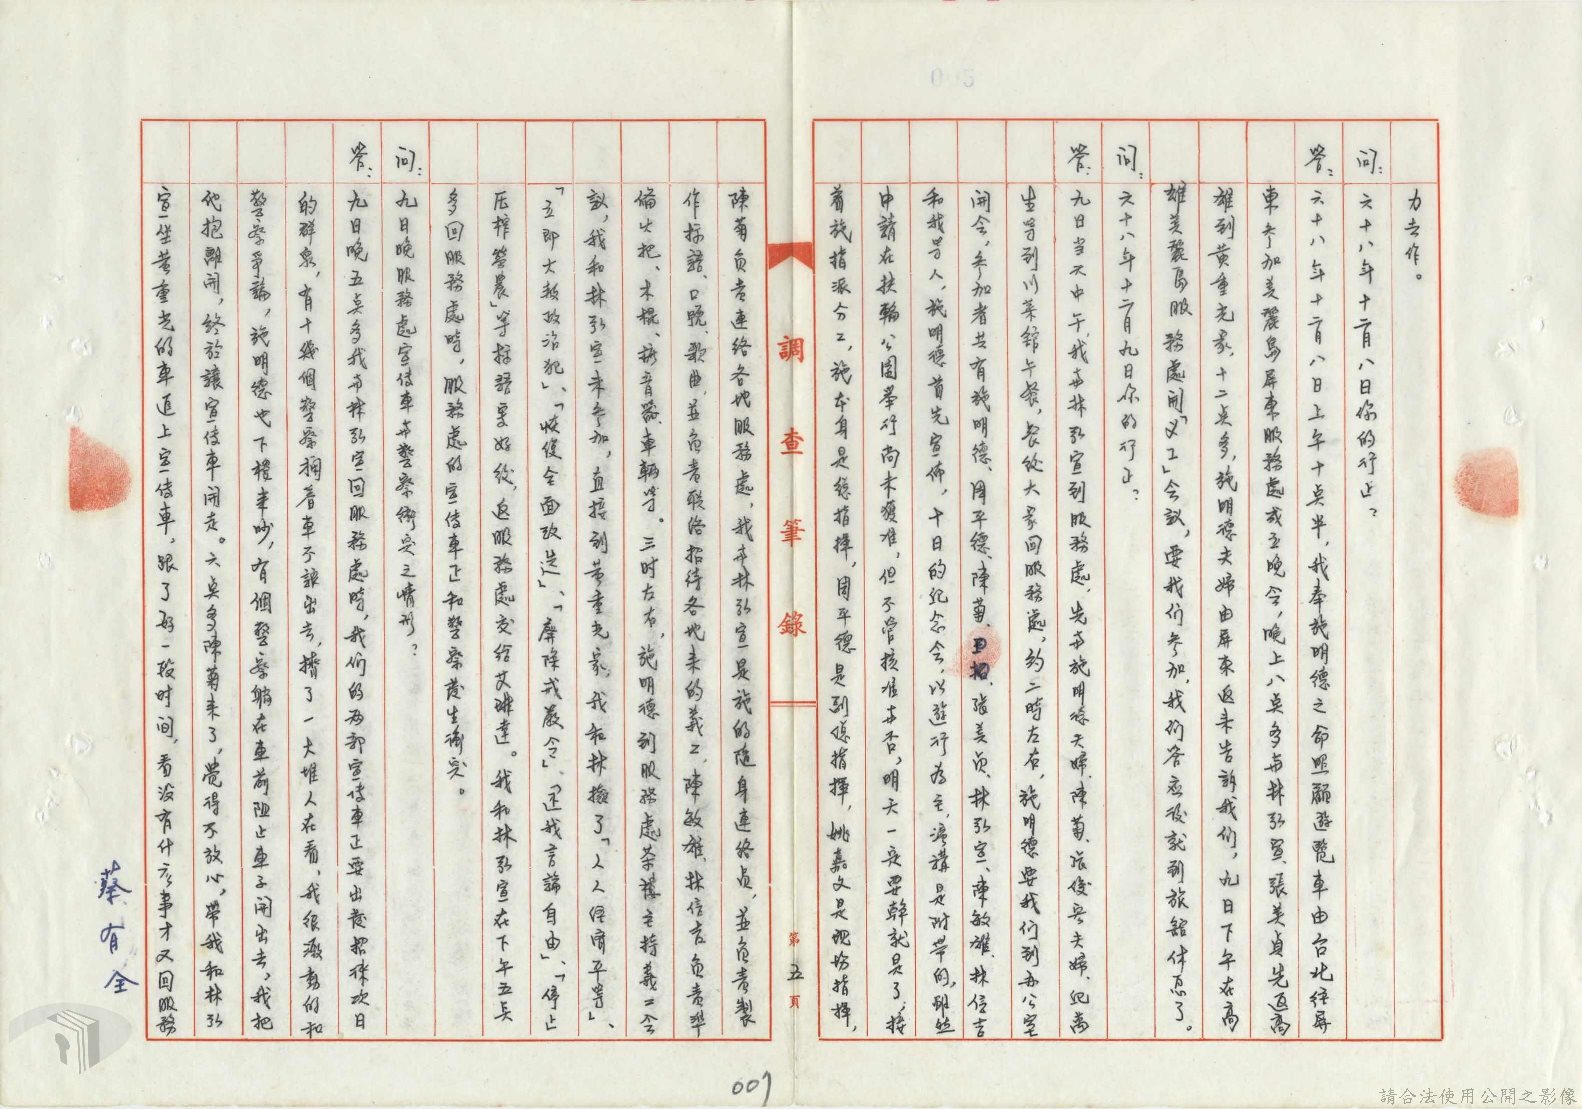 005
力去作。
問:六十八年十二月八日你的行止?
答:六十八年十二月八日上午十点半,我奉施明德之命照顧遊覽車由台北往屏
東參加美麗島屏東服務處成立晚会,晚上八点多与林弘宣、張美貞先返高
雄到黃重光家,十二点多,施明德夫婦由屏東返来告訴我們,九日下午在高
雄美麗島服務處開「义工」会議,要我们參加,我们答应後就到旅館休息了。
問:六十八年十二月九日你的行止?
答:九日当天中午,我与林弘宣到服務處,先与施明德夫婦、陳菊、張俊宏夫婦、紀萬
生等到川菜館午餐,餐後大家回服務處,約二時左右,施明德要我们到办公室
開会,參加者共有施明德、周平德、陳菊、張美貞、林弘宣、陳敏雄、林信吉
和我等人,施明德首先宣佈,十日的紀念会,以遊行為主,演講是附帶的,雖然
申請在扶輪公園舉行尚未獲准,但不管核准与否,明天一定要幹就是了,接
着施指派分工,施本身是總指揮,周平德是副總指揮,姚嘉文是現場指揮,
調查筆錄
第五頁
陳菊負責連絡各地服務處,我与林弘宣是施的隨身連絡員,並負責製
作標語、口號、歌曲,並負責联络招待各地来的義工,陳敏雄、林信吉負責準
備火把、木棍、擴音器、車輛等。三时左右,施明德到服務處茶樓主持義工会
議,我和林弘宣未參加,直接到黃重光家,我和林擬了「人人經濟平等」、
「立即大赦政治犯」、「恢復全面改選」、「廢除戒嚴令」、「还我言論自由」、「停止
压榨勞農」等標語寫好後,返服務處交给艾琳達。我和林弘宣在下午五点
多回服務處時,服務處的宣传車正和警察發生衝突。
問:九日晚服務處宣传車与警察衝突之情形?
答:九日晚五点多我与林弘宣回服務處時,我们的两部宣传車正要出發招徠次日
的群眾,有十幾個警察擋着車不讓出去,擠了一大堆人在看,我很激動的和
警察爭論,施明德也下樓来吵,有個警察躺在車前阻止車子開出去,我把
他抱離開,終於讓宣传車開走。六点多陳菊来了,覺得不放心,帶我和林弘
宣坐黃重光的車追上宣传車,跟了好一段时间,看没有什么事才又回服務
蔡有全
007
請合法使用公開之影像